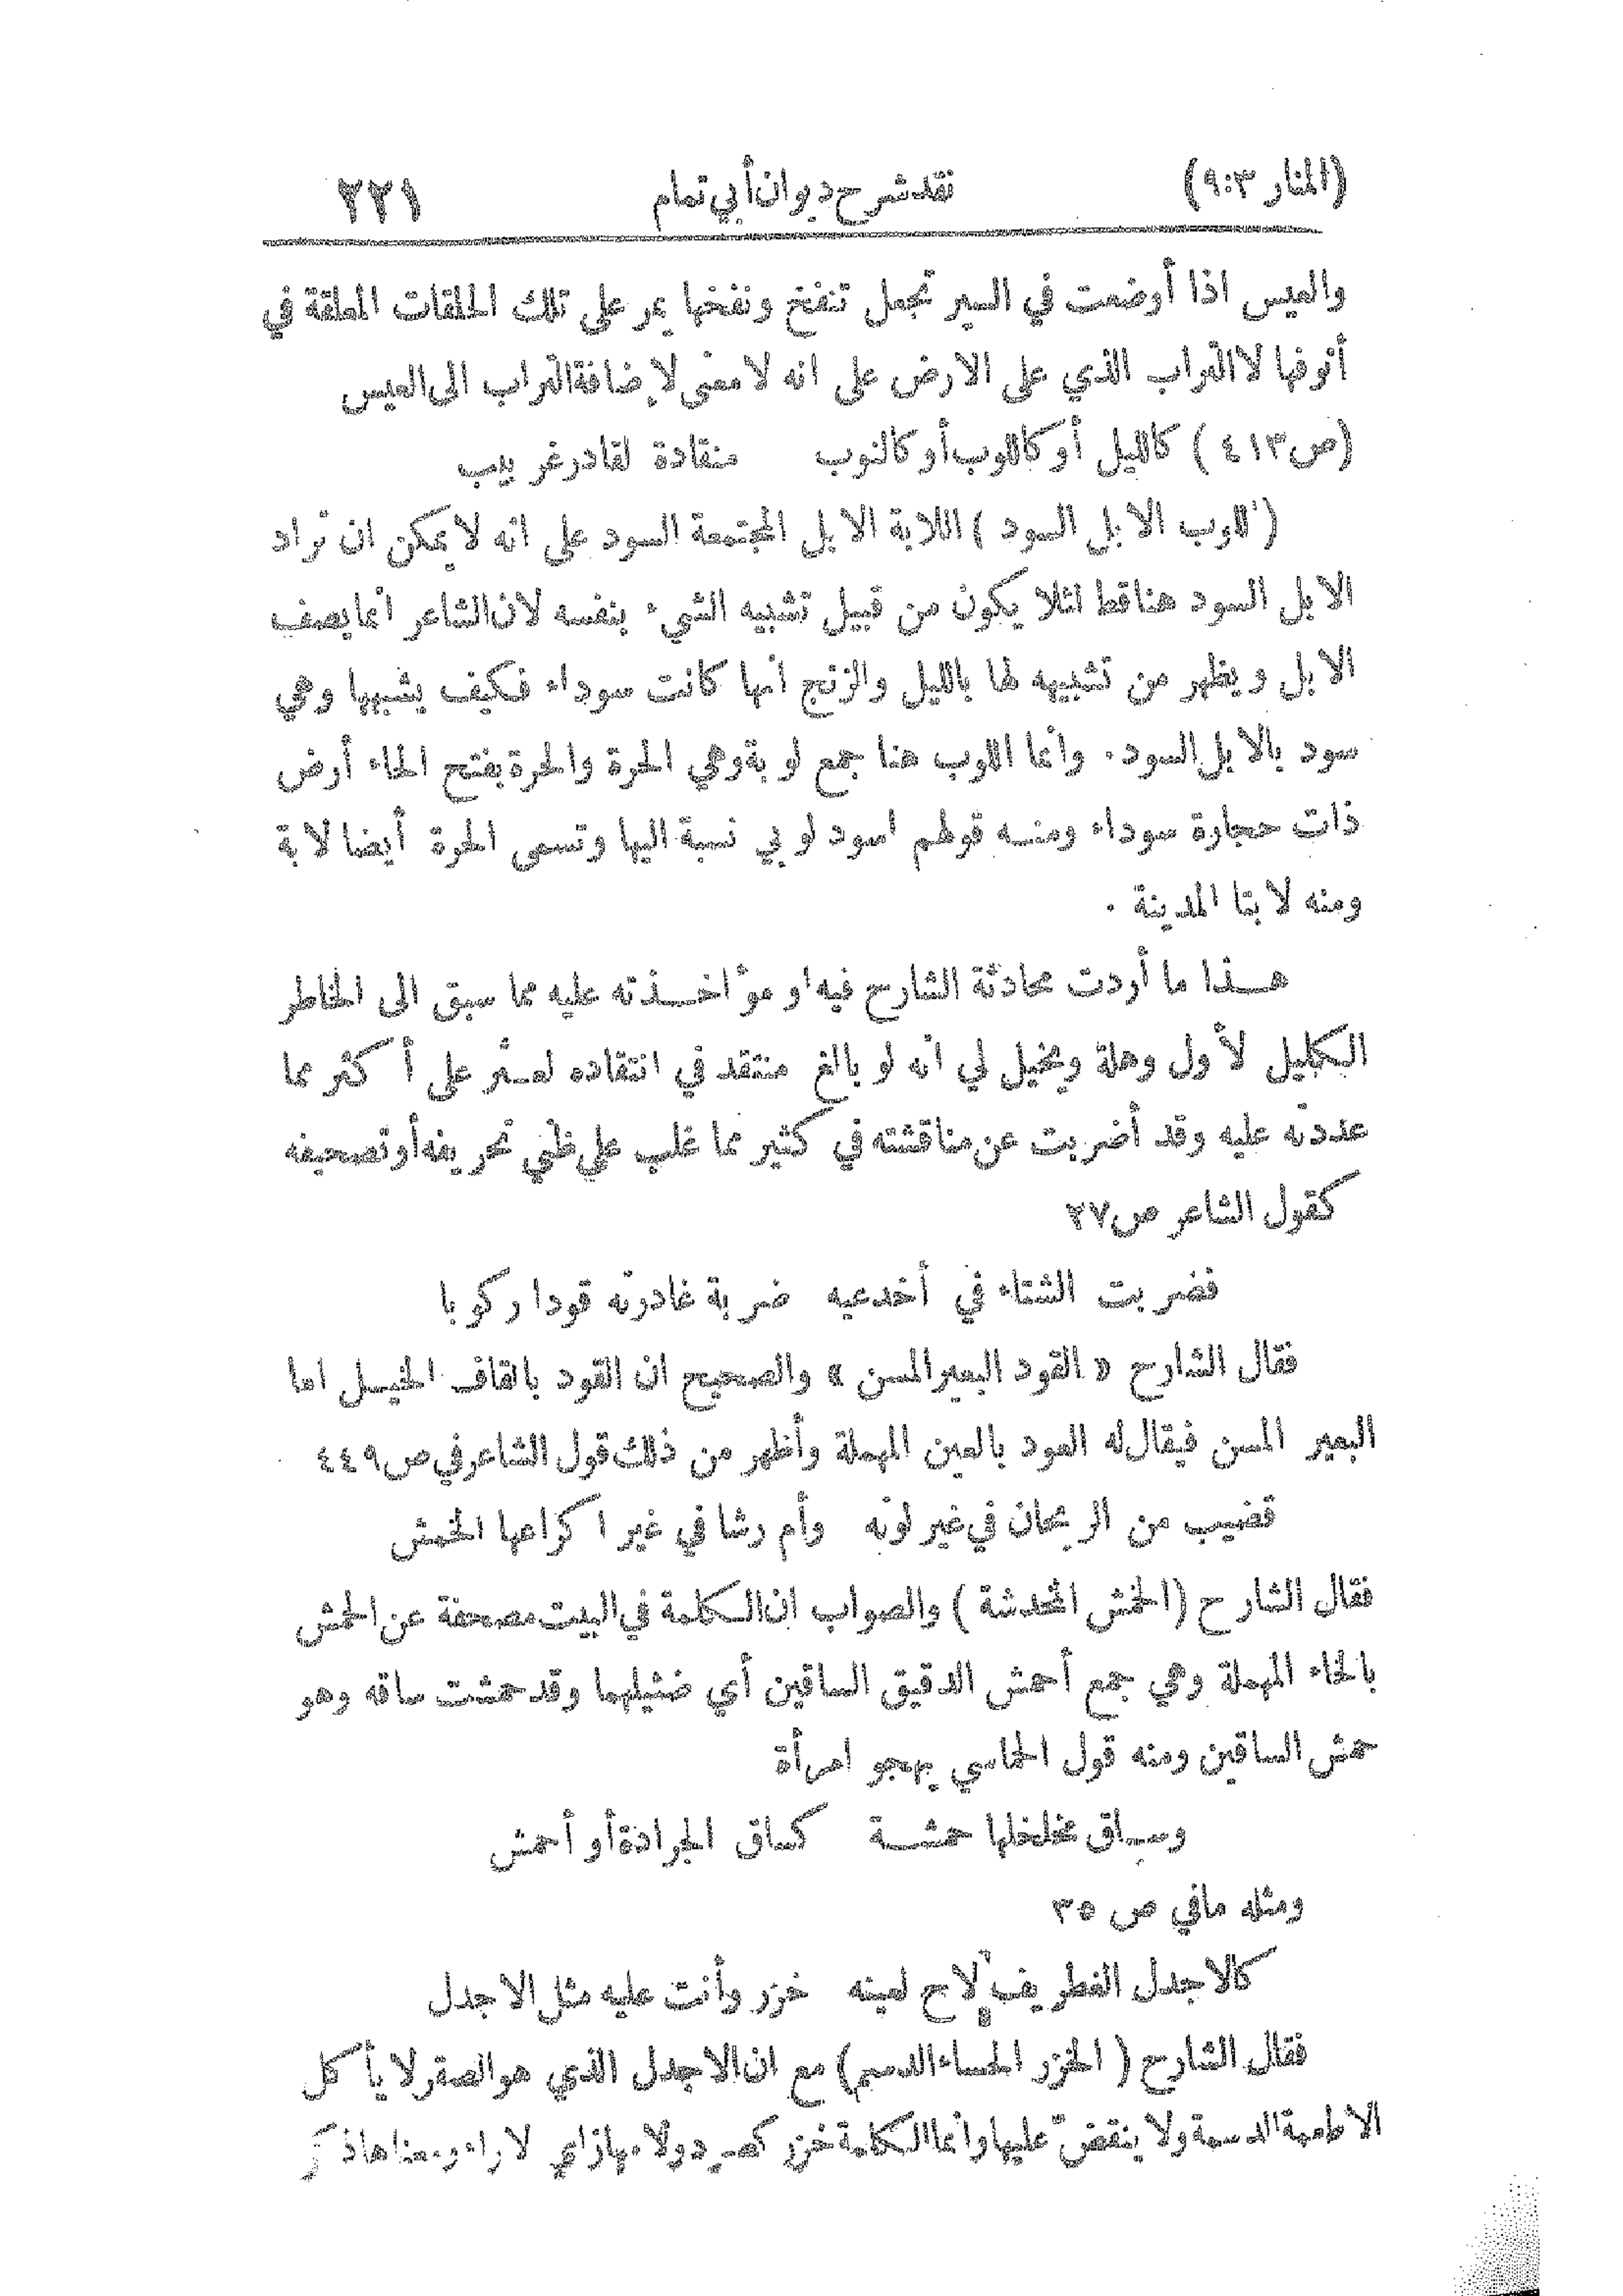 (المنار ٩:٣) نقد شرح ديوان أبي تمام ٢٢١
والعيس اذا أوضعت في السير تجعل تنفخ ونفخها يمر على تلك الحلقات المعلقة في
أنوفها لا التراب الذي على الارض على انه لا معنى لإضافة التراب الى العيس
(ص٤١٣) كالليل أو كاللوب أو كالنوب منقادة لقادر غربيب
(اللوب الابل السود) اللابة الابل المجتمعة السود على انه لا يمكن ان تراد
الابل السود هنا قط لئلا يكون من قبيل تشبيه الشيء بنفسه لان الشاعر انما يصف
الابل ويظهر من تشبيهه لها بالليل والزنج انها كانت سوداء فكيف يشبهها وهي
سود بالابل السود. وانما اللوب هنا جمع لوبة وهي الحرة والحرة بفتح الحاء أرض
ذات حجارة سوداء ومنه قولهم اسود لوبي نسبة اليها وتسمى الحرة أيضا لابة
ومنه لابتا المدينة.
هذا ما أردت محادثة الشارح فيه او مؤاخذته عليه مما سبق الى الخاطر
الكليل لأول وهلة ويخيل لي انه لو بالغ منتقد في انتقاده لعثر على أكثر مما
عددته عليه وقد أضربت عن مناقشته في كثير مما غلب على ظني تحريفه أو تصحيفه
كقول الشاعر ص٢٧
فضربت الشتاء في أخدعيه ضربة غادرته قودا ركوبا
فقال الشارح «القود البعير المسن» والصحيح ان القود بالقاف الخيل اما
البعير المسن فيقال له العود بالعين المهملة وأظهر من ذلك قول الشاعر في ص٤٤٩
قضيب من الريحان في غير لونه وأم رشا في غير اكراعها الخمش
فقال الشارح (الخمش المخدشة) والصواب ان الكلمة في البيت مصحفة عن الحمش
بالحاء المهملة وهي جمع أحمش الدقيق الساقين أي ضئيلهما وقد حمشت ساقه وهو
حمش الساقين ومنه قول الحماسي يهجو امرأة
وساق مخلخلها حمشة كساق الجرادة أو أحمش
ومثله ما في ص ٣٥
كالاجدل الغطريف لاح لعينه خزر وأنت عليه مثل الاجدل
فقال الشارح (الخزر الحساء الدسم) مع ان الاجدل الذي هو الصقر لا يأكل
الاطعمة الدسمة ولا ينقض عليها وانما الكلمة خزز كصرد ولامها زاي لا راء ومعناها ذكر